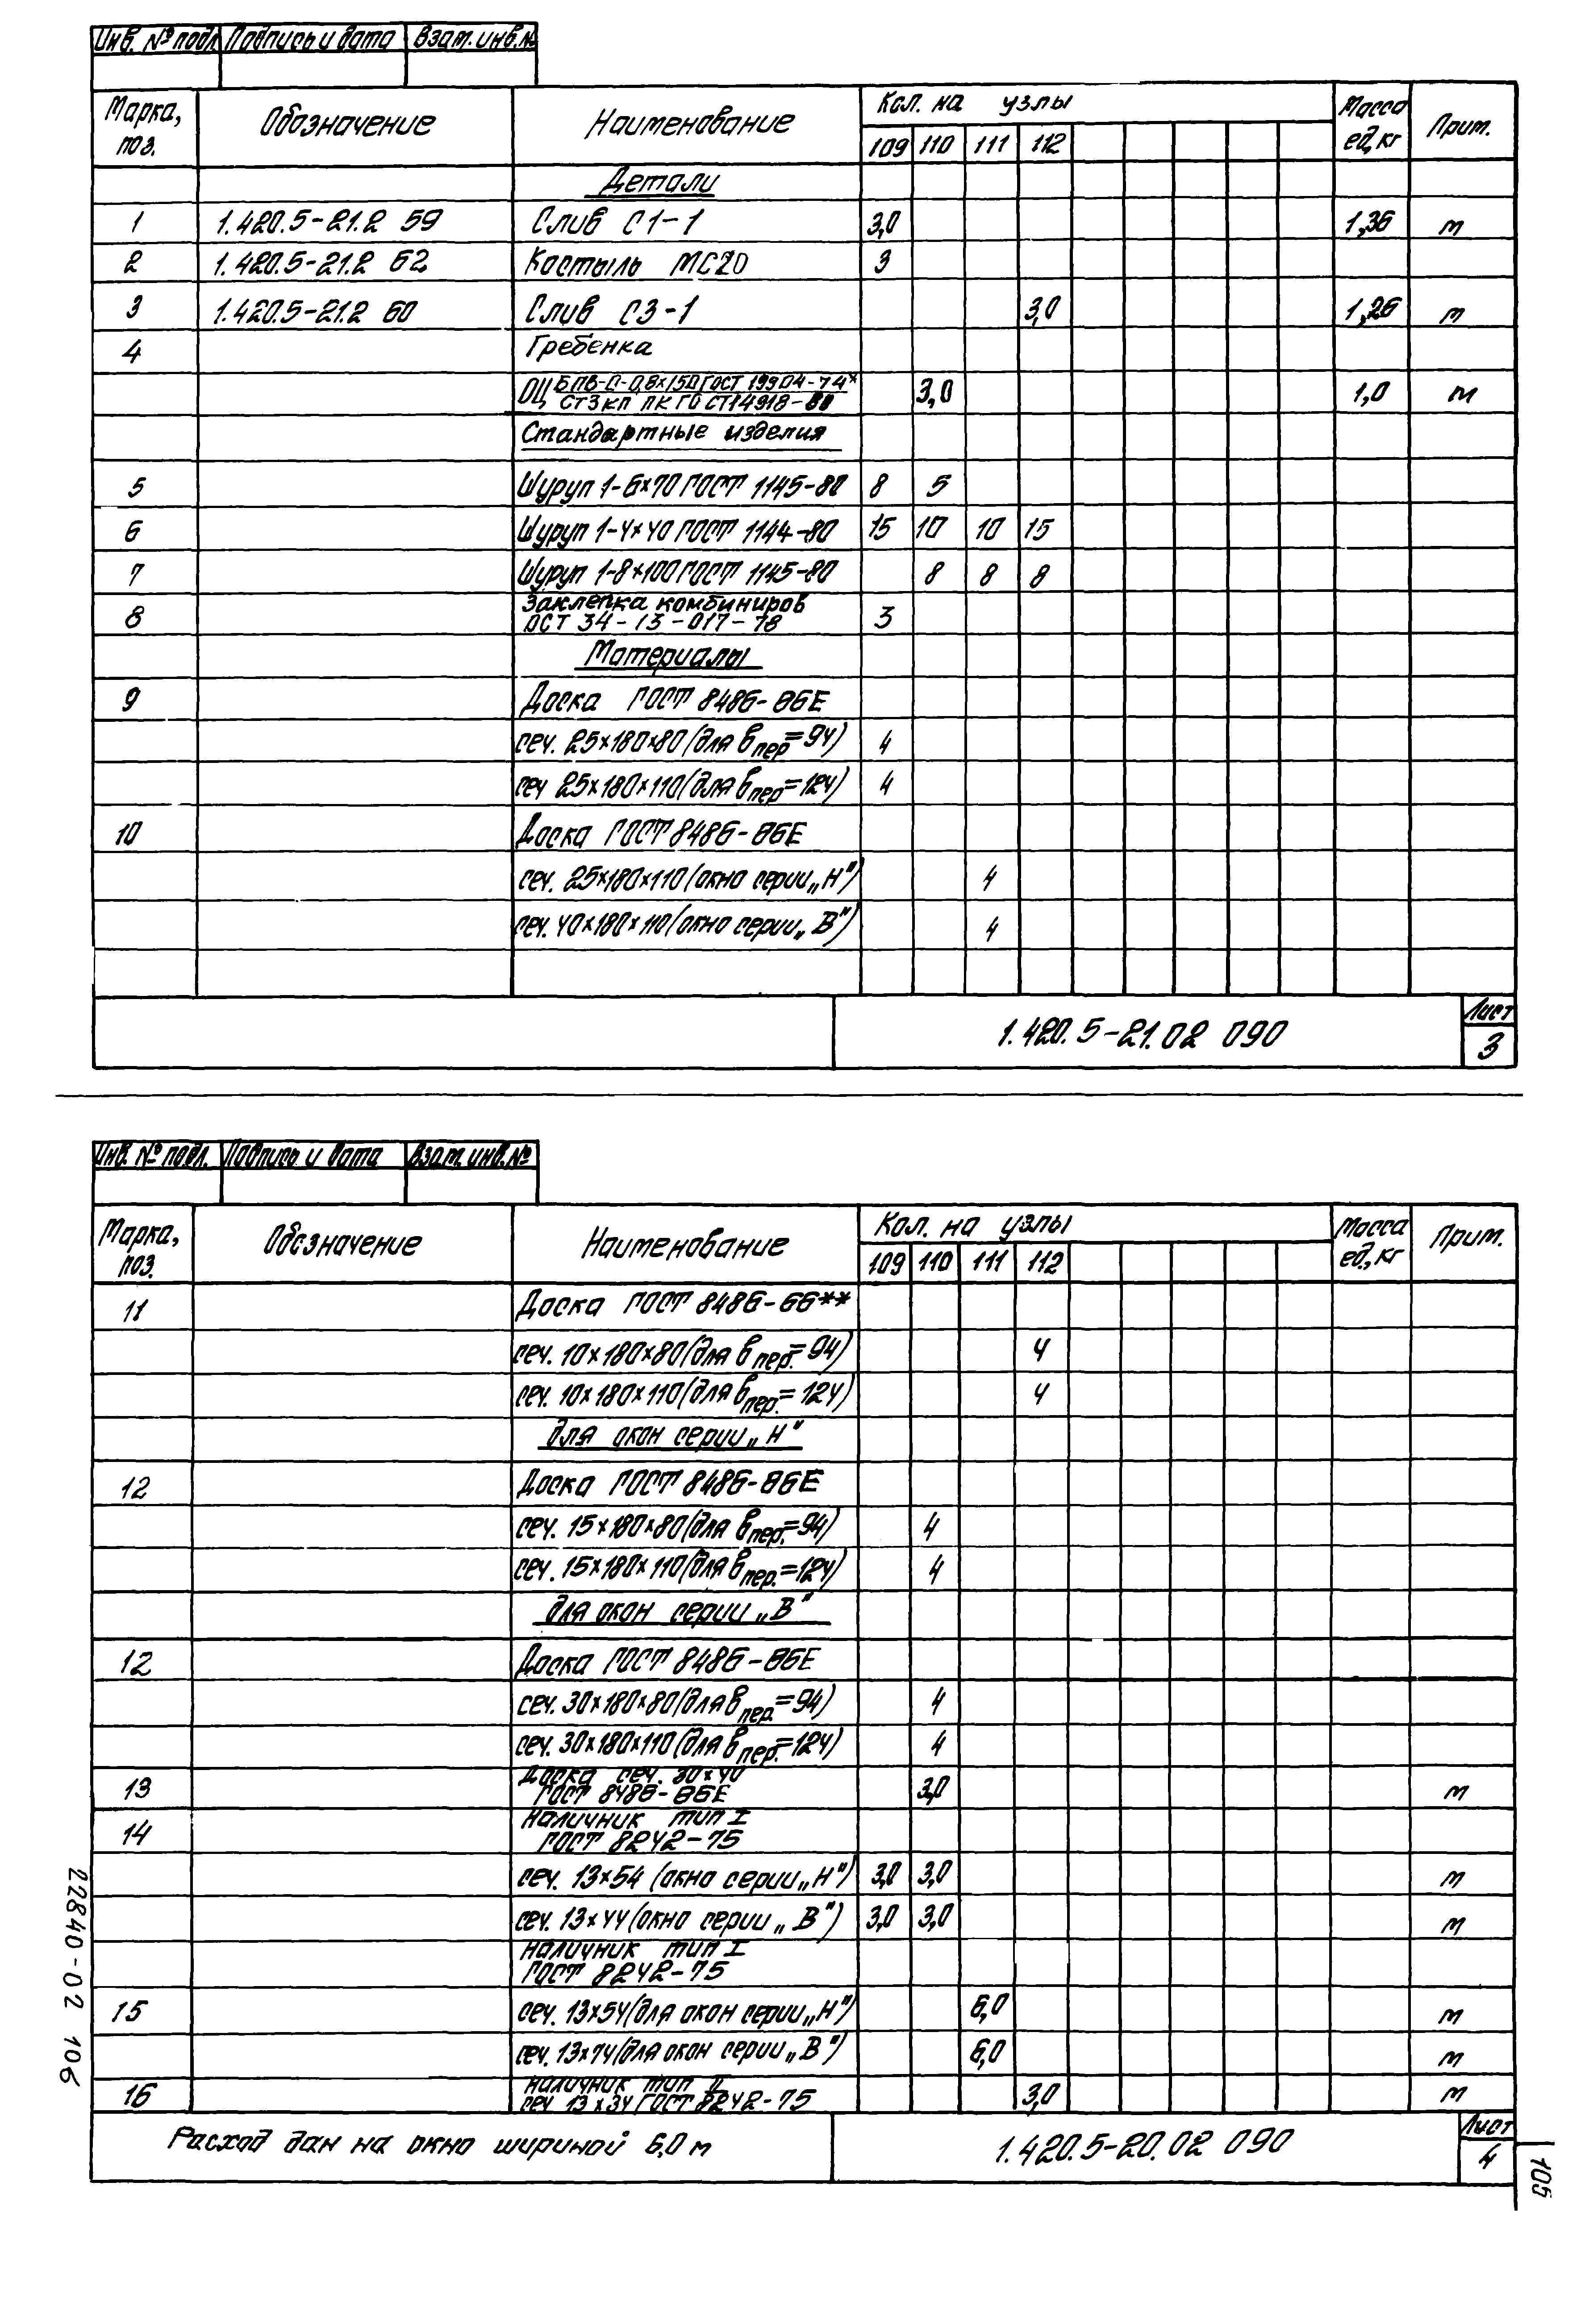 Инв. № подл. Подпись и дата Взам. инв. №
Марка, поз. Обозначение Наименование Кол. на узлы Масса ед, кг Прим.
109 110 111 112
Детали
1 1.420.5-21.2 59 Слив С1-1 3,0 1,36 м
2 1.420.5-21.2 62 Костыль МС20 3
3 1.420.5-21.2 60 Слив С3-1 3,0 1,26 м
4 Гребенка
ОЦ БПВ-О-0,8×150 ГОСТ 19904-74* 3,0 1,0 м
Ст3кп ПК ГОСТ 14918-80
Стандартные изделия
5 Шуруп 1-6×70 ГОСТ 1145-80 8 5
6 Шуруп 1-4×40 ГОСТ 1144-80 15 10 10 15
7 Шуруп 1-8×100 ГОСТ 1145-80 8 8 8
8 Заклепка комбиниров
ОСТ 34-13-017-78 3
Материалы
9 Доска ГОСТ 8486-86Е
сеч. 25×180×80 (для впер=94) 4
сеч 25×180×110 (для впер=124) 4
10 Доска ГОСТ 8486-86Е
сеч. 25×180×110 (окно серии „Н") 4
сеч. 40×180×110 (окно серии „В") 4
1.420.5-21.02 090 Лист
3
Инв. № подл. Подпись и дата Взам. инв. №
Марка, поз. Обозначение Наименование Кол. на узлы Масса ед., кг Прим.
109 110 111 112
11 Доска ГОСТ 8486-66**
сеч. 10×180×80 (для впер.=94) 4
сеч. 10×180×110 (для впер.=124) 4
для окон серии „Н"
12 Доска ГОСТ 8486-86Е
сеч. 15×180×80 (для впер.=94) 4
сеч. 15×180×110 (для впер.=124) 4
для окон серии „В"
12 Доска ГОСТ 8486-86Е
сеч. 30×180×80 (для впер.=94) 4
сеч. 30×180×110 (для впер.=124) 4
13 Доска сеч. 30×40
ГОСТ 8486-86Е 3,0 м
14 Наличник тип I
ГОСТ 8242-75
сеч. 13×54 (окно серии „Н") 3,0 3,0 м
сеч. 13×44 (окно серии „В") 3,0 3,0 м
Наличник тип I
ГОСТ 8242-75
15 сеч. 13×54 (для окон серии „Н") 6,0 м
сеч. 13×74 (для окон серии „В") 6,0 м
16 Наличник тип II
сеч 13×34 ГОСТ 8242-75 3,0 м
Расход дан на окно шириной 6,0 м 1.420.5-20.02 090 Лист
4
22840-02 106
105